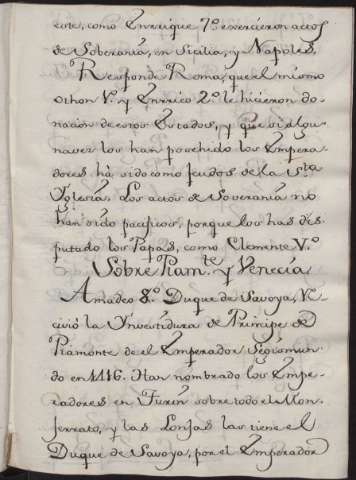 este, como Enrrique 7.º exercieron actos
de Soberanía, en Sicilia, y Napoles.
Responde Roma, que el mismo
Othon V. y Enrrico 2.º le hicieron do-
nacion de estos Estados, y que si algu-
na vez los han posehido los Empera-
dores há sido como feudos de la S.ta
Iglesia. Los actos de Soverania no
han sido pacificos, porque los has dis-
putado los Papas, como Clemente V.º
Sobre Piam.te y Venecia
Amadeo 8.º Duque de Savoya, Re-
civió la Ynvestidura de Principe de
Piamonte de el Emperador Segismun-
do en 1116. Han nombrado los Empe-
radores en Turin sobre todo el Mon-
ferrato, y las Lonjas las tiene el
Duque de Savoya, por el Emperador